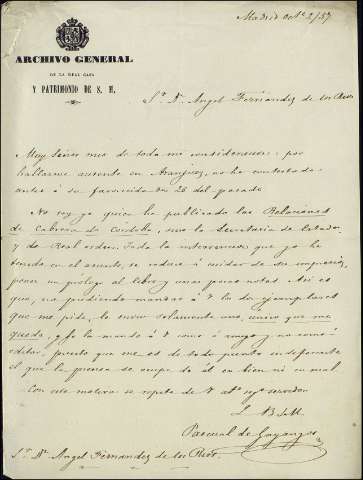 Madrid Oct.e 2/57
ARCHIVO GENERAL
DE LA REAL CASA
Y PATRIMONIO DE S. M.
Sr. Dn. Angel Fernández de los Rios
Muy Señor mio de toda mi consideracion: por
hallarme ausente en Aranjuez, no he contestado
antes á su favorecida del 26 del pasado
No soy yo quien ha publicado las Relaciones
de Cabrera de Cordoba, sino la Secretaria de Estado,
y de Real orden. Toda la intervencion que yo he
tenido en el asunto, se reduce á cuidar de su impresion,
poner un prólogo al libro y unas pocas notas. Asi es
que, no pudiendo mandar á V. los ejemplares
que me pide, le envio solamente uno, unico que me
queda, y se lo mando á V. como á amigo y no como á
editor, puesto que me es de todo punto indiferente
el que la prensa se ocupe de él en bien ni en mal.
Con este motivo se repite de V. at.o sego servidor
Q. B. S. M.
Pascual de Gayangos
Sr. Dn. Angel Fernandez de los Rios.